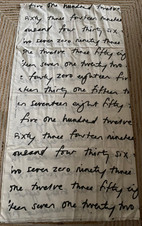 five one hundred twelve
sixty three fourteen ninetee
ousand four thirty six
two seven zero ninety three
one twelve three fifty eig
teen seven one twenty two
forty zero eighteen fif
teen thirty one fifteen
in seventeen eight fifty
five one hundred twelve
sixty three fourteen ninetee
ousand four thirty six
two seven zero ninety three
one twelve three fifty eig
teen seven one twenty two